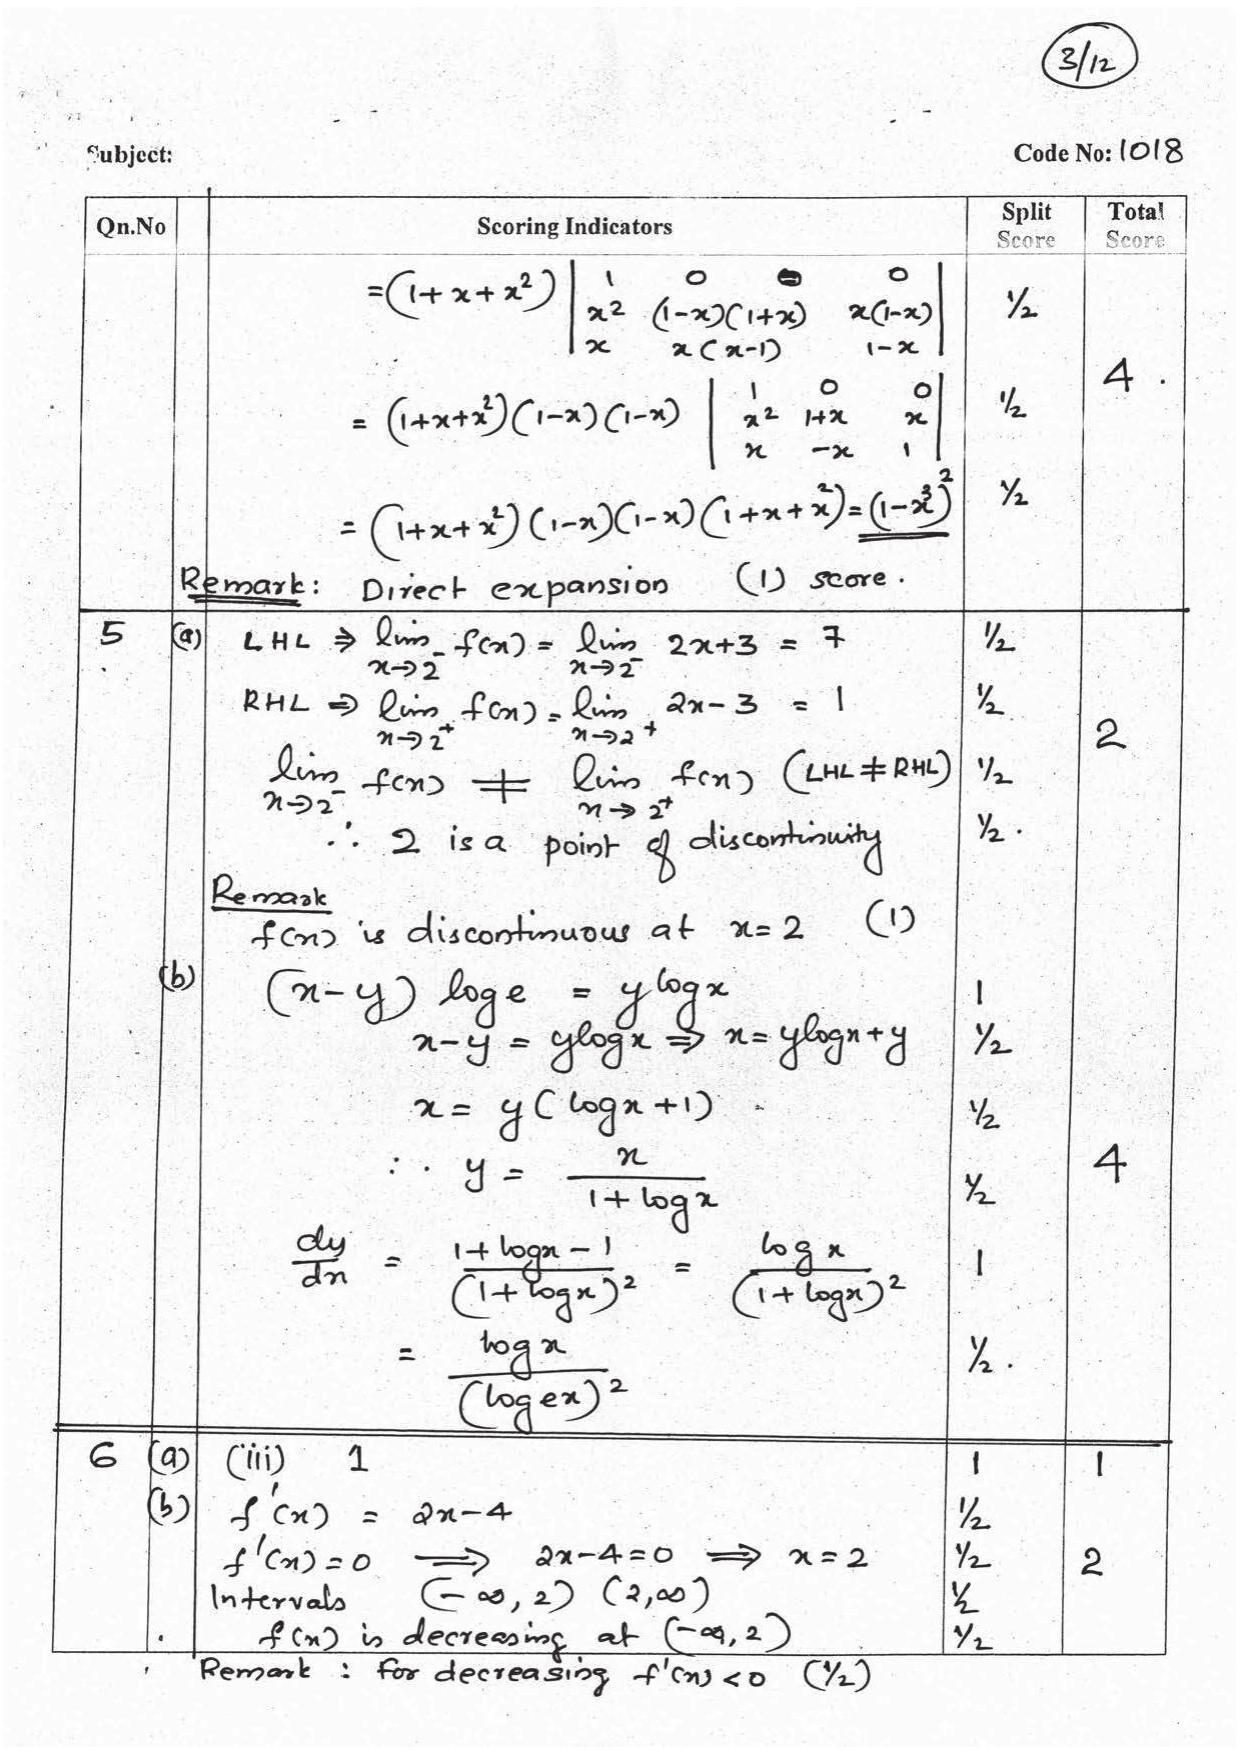 3/12
Subject:
Code No: 1018
Qn.No Scoring Indicators Split Score Total Score
=(1+x+x²) | 1 0 0 | ½
| x² (1-x)(1+x) x(1-x) |
| x x(x-1) 1-x |
4.
= (1+x+x²)(1-x)(1-x) | 1 0 0 | ½
| x² 1+x x |
| x -x 1 |
= (1+x+x²)(1-x)(1-x)(1+x+x²)=(1-x³)² ½
Remark: Direct expansion (1) score.
5 (a) LHL ⇒ lim x→2⁻ f(x) = lim x→2⁻ 2x+3 = 7 ½
RHL ⇒ lim x→2⁺ f(x) = lim x→2⁺ 2x-3 = 1 ½
2
lim x→2⁻ f(x) ≠ lim x→2⁺ f(x) (LHL≠RHL) ½
∴ 2 is a point of discontinuity ½.
Remark
f(x) is discontinuous at x=2 (1)
(b) (x-y) loge = ylogx 1
x-y = ylogx ⇒ x=ylogx+y ½
x= y(logx+1) ½
4
∴ y = x/(1+logx) ½
dy/dx = (1+logx-1)/(1+logx)² = logx/(1+logx)² 1
= logx/(logex)² ½.
6 (a) (iii) 1 1 1
(b) f'(x) = 2x-4 ½
f'(x)=0 ⟹ 2x-4=0 ⟹ x=2 ½ 2
Intervals (-∞,2) (2,∞) ½
f(x) is decreasing at (-∞,2) ½
Remark : for decreasing f'(x)<0 (½)